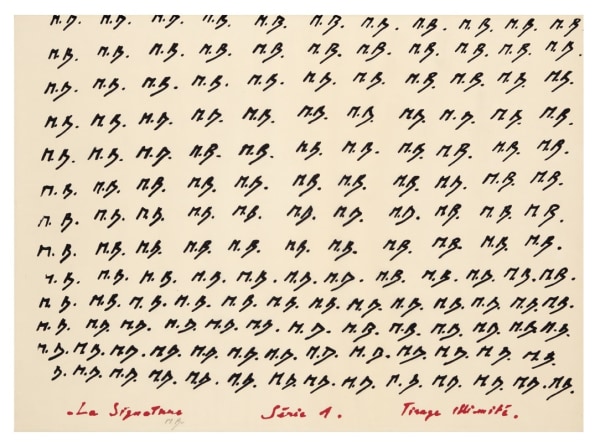 M.B. M.B. M.B. M.B. M.B. M.B. M.B. M.B. M.B. M.B. M.B.
M.B. M.B. M.B. M.B. M.B. M.B. M.B. M.B. M.B. M.B. M.B.
M.B. M.B. M.B. M.B. M.B. M.B. M.B. M.B. M.B. M.B. M.B.
M.B. M.B. M.B. M.B. M.B. M.B. M.B. M.B. M.B. M.B. M.B.
M.B. M.B. M.B. M.B. M.B. M.B. M.B. M.B. M.B. M.B. M.B.
M.B. M.B. M.B. M.B. M.B. M.B. M.B. M.B. M.B. M.B. M.B.
M.B. M.B. M.B. M.B. M.B. M.B. M.B. M.B. M.B. M.B. M.B.
M.B. M.B. M.B. M.B. M.B. M.B. M.B. M.B. M.B. M.B. M.B.
M.B. M.B. M.B. M.B. M.B. M.B. M.B. M.B. M.B. M.B. M.B. M.B.
M.B. M.B. M.B. M.B. M.B. M.B. M.B. M.B. M.B. M.B. M.B. M.B. M.B.
M.B. M.B. M.B. M.B. M.B. M.B. M.B. M.B. M.B. M.B. M.B. M.B. M.B.
M.B. M.B. M.B. M.B. M.B. M.B. M.B. M.B. M.B. M.B. M.B. M.B. M.B.
B. M.B. M.B. M.B. M.B. M.B. M.B. M.B. M.B. M.B. M.B. M.B. M.B. M.B.
La Signature Série 1. Tirage illimité.